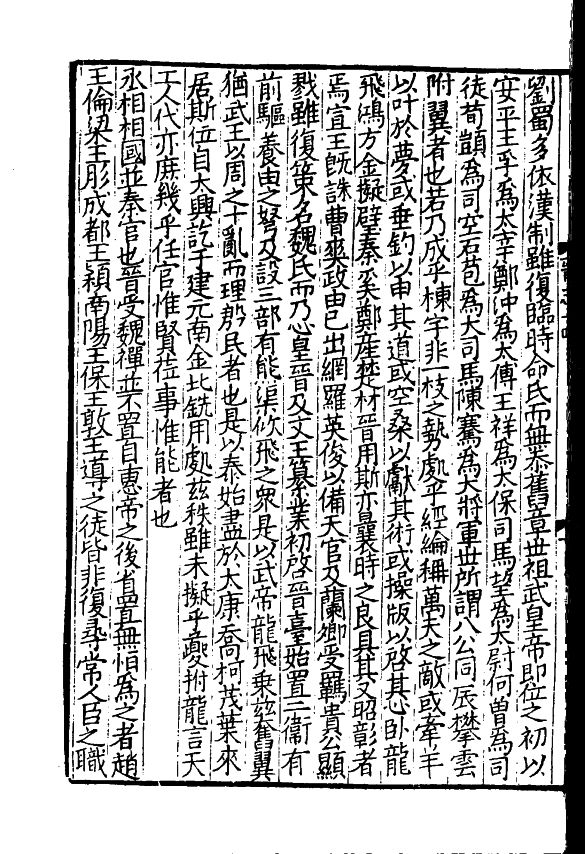 劉蜀多依漢制雖復臨時命氏而無忝舊章世祖武皇帝即位之初以
安平王孚為太宰鄭沖為太傅王祥為太保司馬望為太尉何曾為司
徒荀顗為司空石苞為大司馬陳騫為大將軍世所謂八公同辰攀雲
附翼者也若乃成乎棟宇非一枝之勢處乎經綸稱萬夫之敵或牽羊
以叶於夢或垂釣以申其道或空桑以獻其術或操版以啓其心臥龍
飛鴻方金擬璧秦奚鄭產楚材晉用斯亦曩時之良具其又昭彰者
焉宣王既誅曹爽政由己出網羅英俊以備天官及蘭卿受羈貴公顯
戮雖復策名魏氏而乃心皇晉及文王纂業初啓晉臺始置二衞有
前驅養由之弩及設三部有熊渠佽飛之衆是以武帝龍飛乗兹奮翼
猶武王以周之十亂而理殷民者也是以泰始盡於太康喬柯茂葉來
居斯位自太興訖于建元南金北銑用處兹秩雖未擬乎夔拊龍言天
工人代亦庶幾乎任官惟賢莅事惟能者也
丞相相國並秦官也晉受魏禪並不置自惠帝之後省置無恒為之者趙
王倫梁王肜成都王穎南陽王保王敦王導之徒皆非復尋常人臣之職